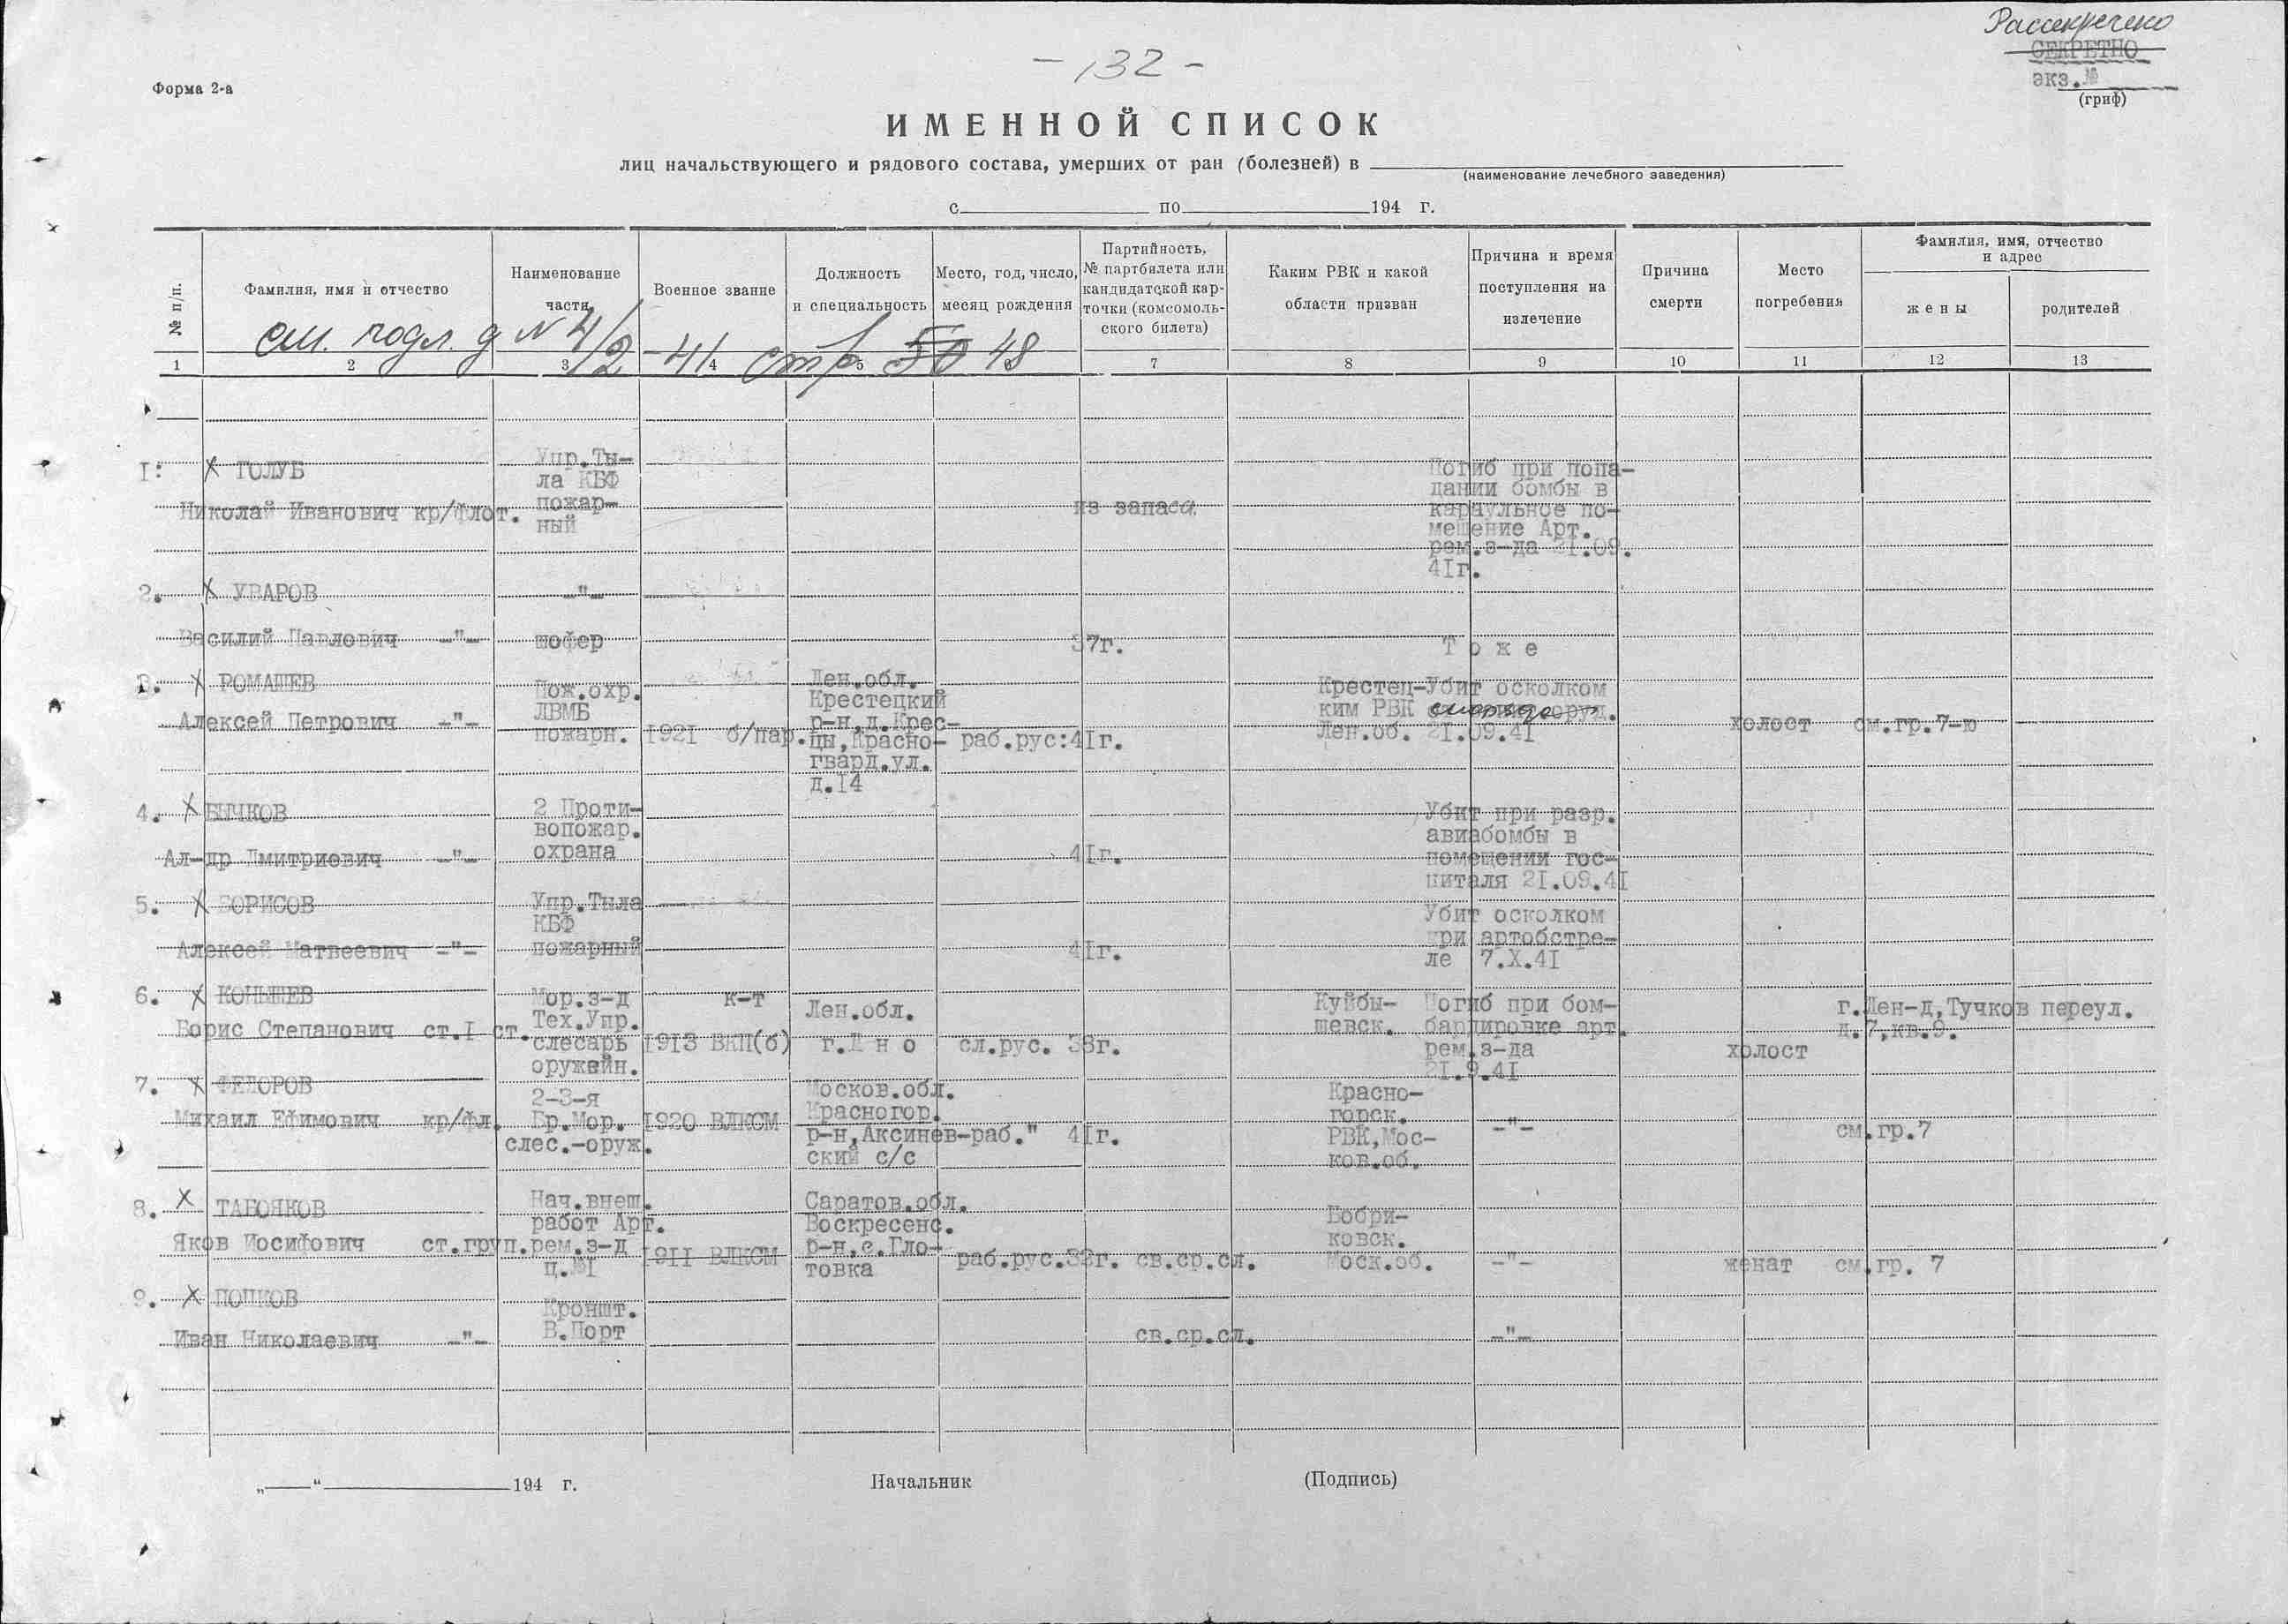 Рассекречено
СЕКРЕТНО
экз.№
(гриф)
- 132 -
Форма 2-а
ИМЕННОЙ СПИСОК
лиц начальствующего и рядового состава, умерших от ран (болезней) в
(наименование лечебного заведения)
с по 194 г.
№ п/п.
Фамилия, имя и отчество
Наименование части
Военное звание
Должность и специальность
Место, год, число, месяц рождения
Партийность, № партбилета или кандидатской карточки (комсомольского билета)
Каким РВК и какой области призван
Причина и время поступления на излечение
Причина смерти
Место погребения
Фамилия, имя, отчество и адрес
жены
родителей
см. подл. д N 4/2 -41 стр 50 48
1 2 3 4 5 7 8 9 10 11 12 13
I: ГОЛУБ
Николай Иванович кр/флот.
Упр.Ты-
ла КБФ
пожар-
ный
из запаса
Погиб при попа-
дании бомбы в
караульное по-
мещение Арт.
рем.з-да 21.09.
41г.
2. УВАРОВ
Василий Павлович -"-
-"-
шофер
37г.
Т о ж е
3. РОМАШЕВ
Алексей Петрович -"-
Пож.охр.
ЛВМБ
пожарн.
1921 б/пар.
Лен.обл.
Крестецкий
р-н,д.Крес-
цы,Красно-
гвард.ул.
д.14
раб.рус:41г.
Крестец-
ким РВК
Лен.об.
Убит осколком
снаряда
21.09.41
холост
см.гр.7-ю
4. БЫЧКОВ
Ал-др Дмитриевич -"-
2 Проти-
вопожар.
охрана
41г.
Убит при разр.
авиабомбы в
помещении гос-
питаля 21.09.41
5. БОРИСОВ
Алексей Матвеевич -"-
Упр.Тыла
КБФ
пожарный
41г.
Убит осколком
при артобстре-
ле 7.X.41
6. КОНЫШЕВ
Борис Степанович ст.I ст.
Мор.з-д
Тех.Упр.
слесарь
оружейн.
к-т
1913 ВКП(б)
Лен.обл.
г.Д н о
сл.рус. 38г.
Куйбы-
шевск.
Погиб при бом-
бардировке арт.
рем.з-да
21.9.41
холост
г.Лен-д,Тучков переул.
д.7,кв.9.
7. ФЕДОРОВ
Михаил Ефимович кр/фл.
2-3-я
Бр.Мор.
слес.-оруж.
1920 ВЛКСМ
Москов.обл.
Красногор.
р-н,Аксинев-
ский с/с
раб." 41г.
Красно-
горск.
РВК,Мос-
ков.об.
-"-
см.гр.7
8. ТАБОЯКОВ
Яков Иосифович ст.груп.
Нач.внеш.
работ Арт.
рем.з-д
ц.№1
1911 ВЛКСМ
Саратов.обл.
Воскресенс.
р-н,с.Гло-
товка
раб.рус.32г. св.ср.сл.
Бобри-
ковск.
Моск.об.
-"-
женат
см.гр. 7
9. ПОПКОВ
Иван Николаевич -"-
Кроншт.
В.Порт
св.ср.сл.
-"-
„ “ 194 г.
Начальник
(Подпись)